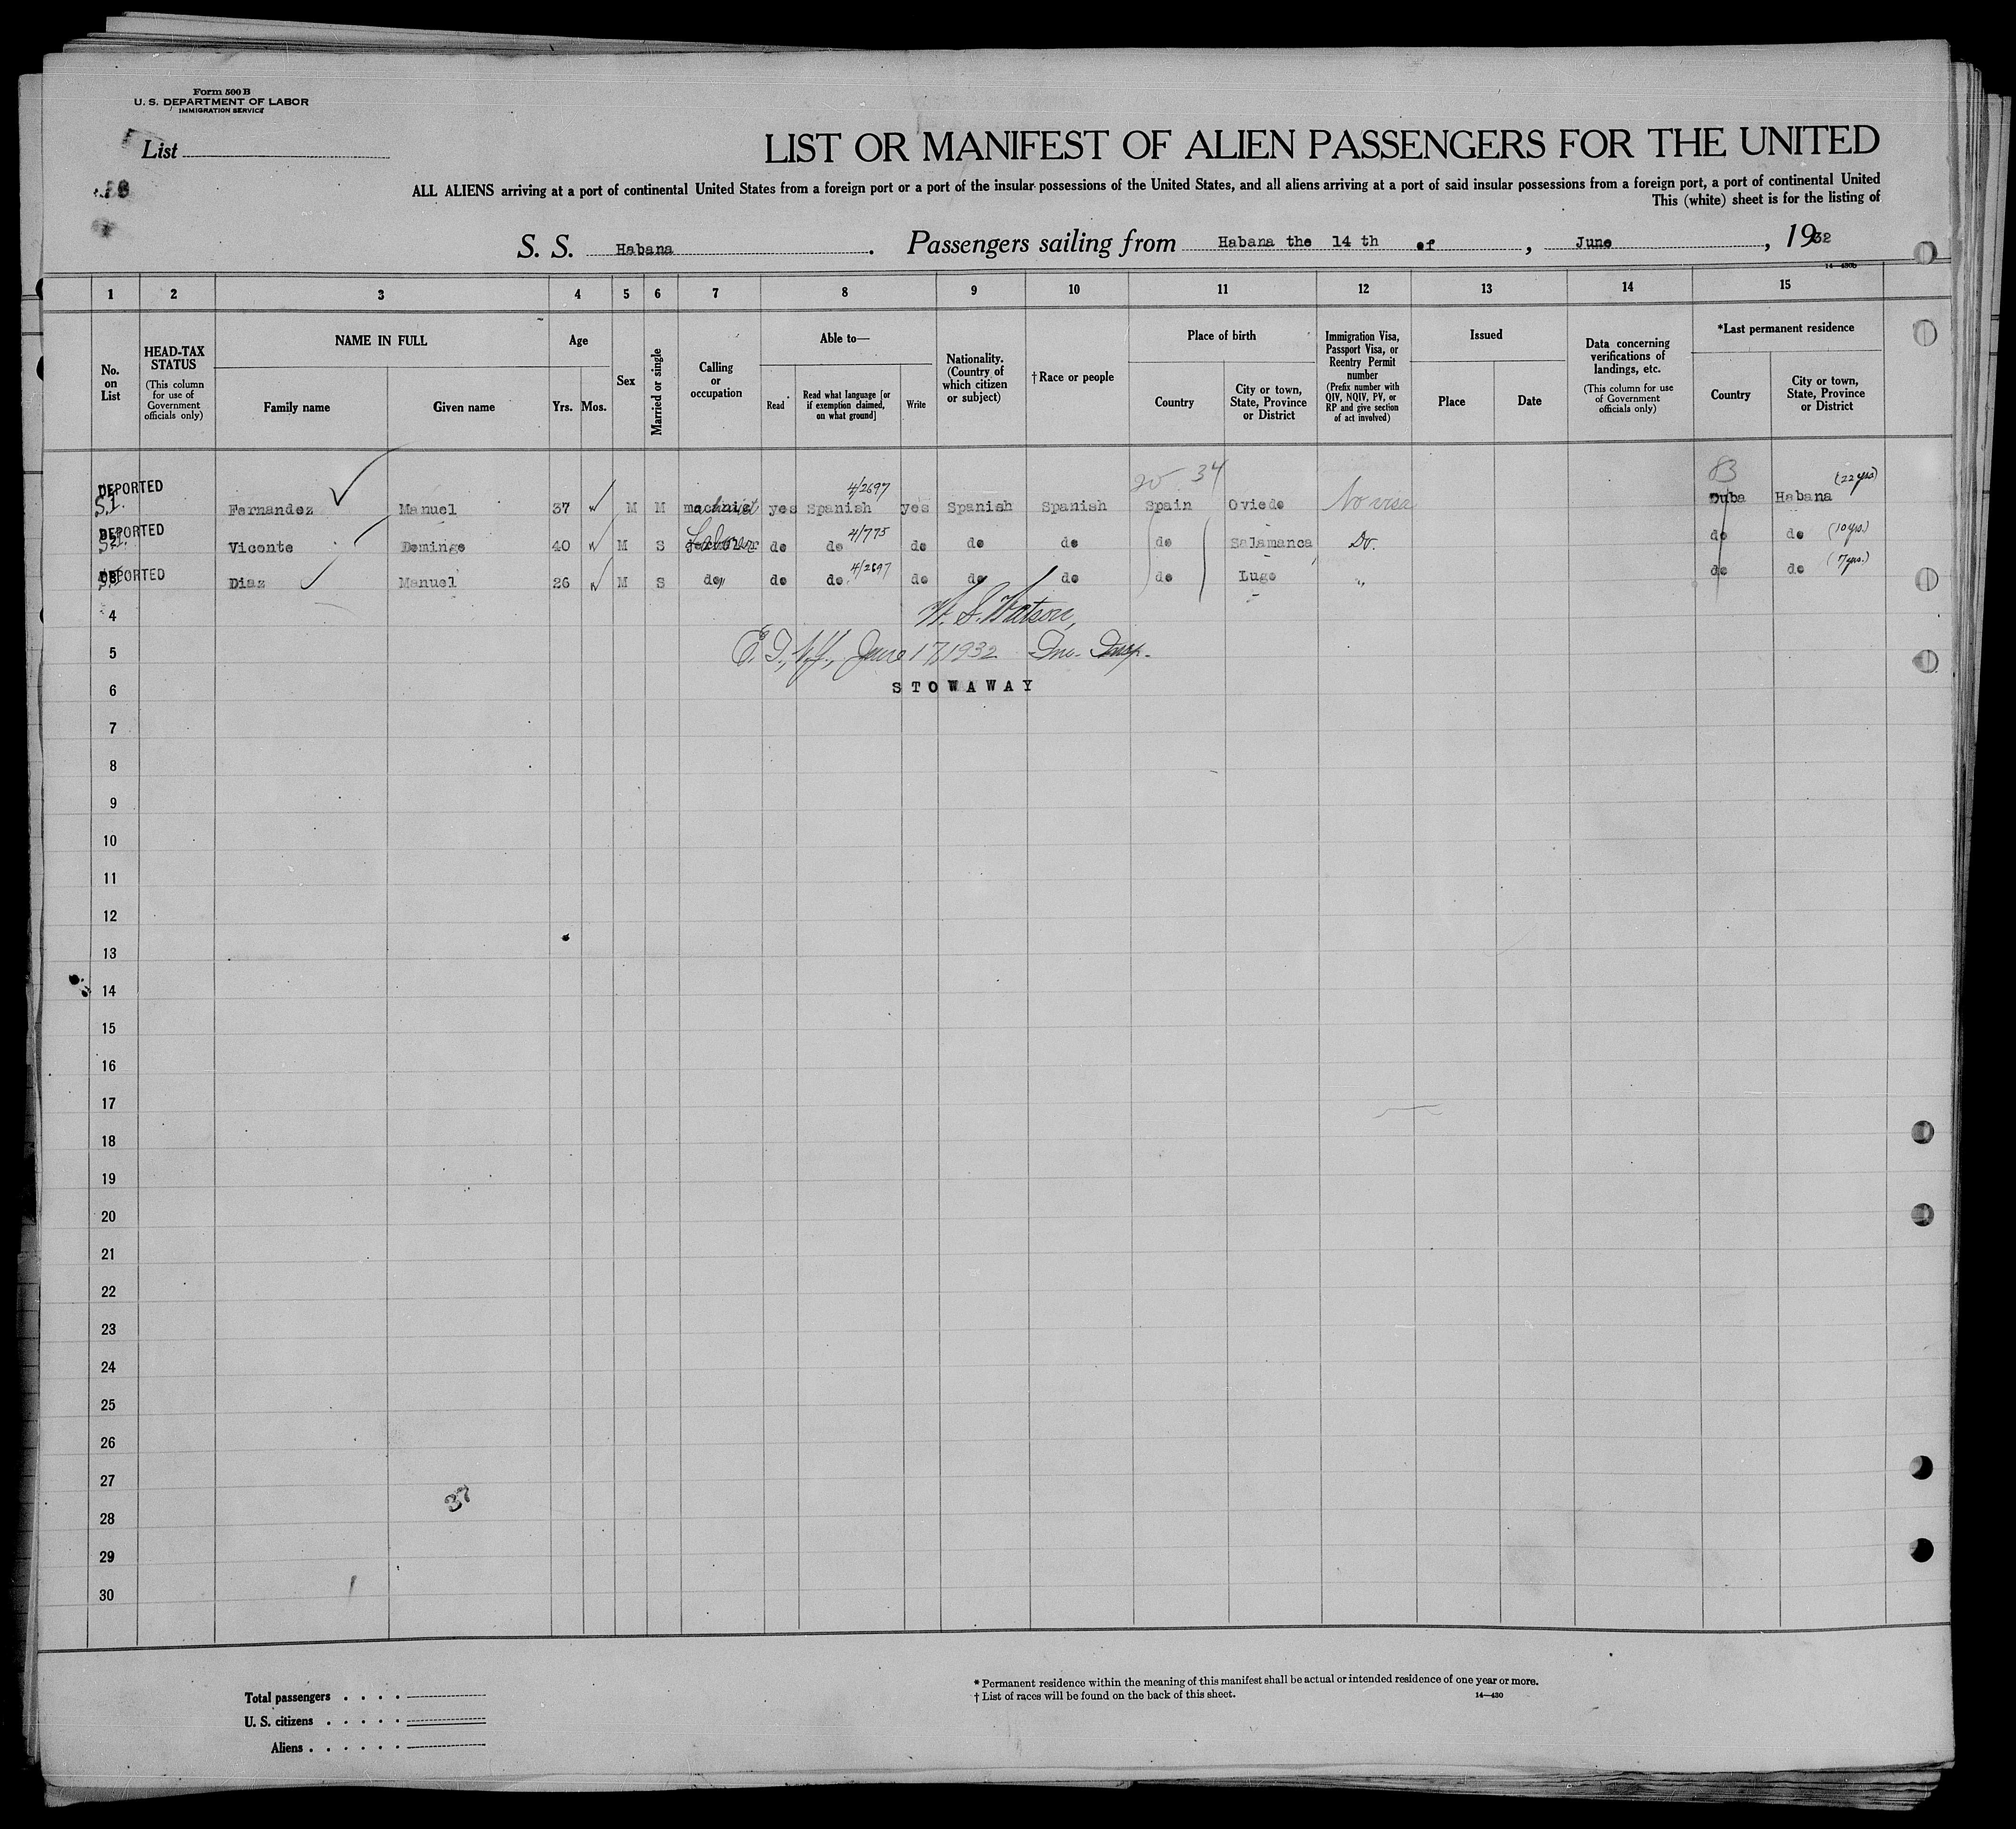 Form 500 B
U. S. DEPARTMENT OF LABOR
IMMIGRATION SERVICE
List
LIST OR MANIFEST OF ALIEN PASSENGERS FOR THE UNITED
ALL ALIENS arriving at a port of continental United States from a foreign port or a port of the insular possessions of the United States, and all aliens arriving at a port of said insular possessions from a foreign port, a port of continental United
This (white) sheet is for the listing of
S. S. Habana. Passengers sailing from Habana the 14 th of, June, 1932
14—430b
1 2 3 4 5 6 7 8 9 10 11 12 13 14 15
No. on List
HEAD-TAX STATUS (This column for use of Government officials only)
NAME IN FULL
Family name
Given name
Age
Yrs. Mos.
Sex
Married or single
Calling or occupation
Able to—
Read
Read what language [or if exemption claimed, on what ground]
Write
Nationality. (Country of which citizen or subject)
†Race or people
Place of birth
Country
City or town, State, Province or District
Immigration Visa, Passport Visa, or Reentry Permit number (Prefix number with QIV, NQIV, PV, or RP and give section of act involved)
Issued
Place
Date
Data concerning verifications of landings, etc. (This column for use of Government officials only)
*Last permanent residence
Country
City or town, State, Province or District
20 34 83
DEPORTED S.I. Fernandez Manuel 37 M M machnist yes Spanish 4/2697 yes Spanish Spanish Spain Oviedo No visa Cuba Habana (22 yrs)
DEPORTED Vicente Domingo 40 M S Labourer do do 4/775 do do do do Salamanca Do. do do (10 yrs.)
DEPORTED Diaz Manuel 26 M S do do do 4/2697 do do do do Lugo " do do (7 yrs.)
4 W. S. Watson,
5 E. I., N.Y., June 17, 1932 Imm. Insp.
6 STOWAWAY
7
8
9
10
11
12
13
14
15
16
17
18
19
20
21
22
23
24
25
26
27
37
28
29
30
Total passengers . . . .
U. S. citizens . . . . .
Aliens . . . . . .
* Permanent residence within the meaning of this manifest shall be actual or intended residence of one year or more.
† List of races will be found on the back of this sheet.
14—430